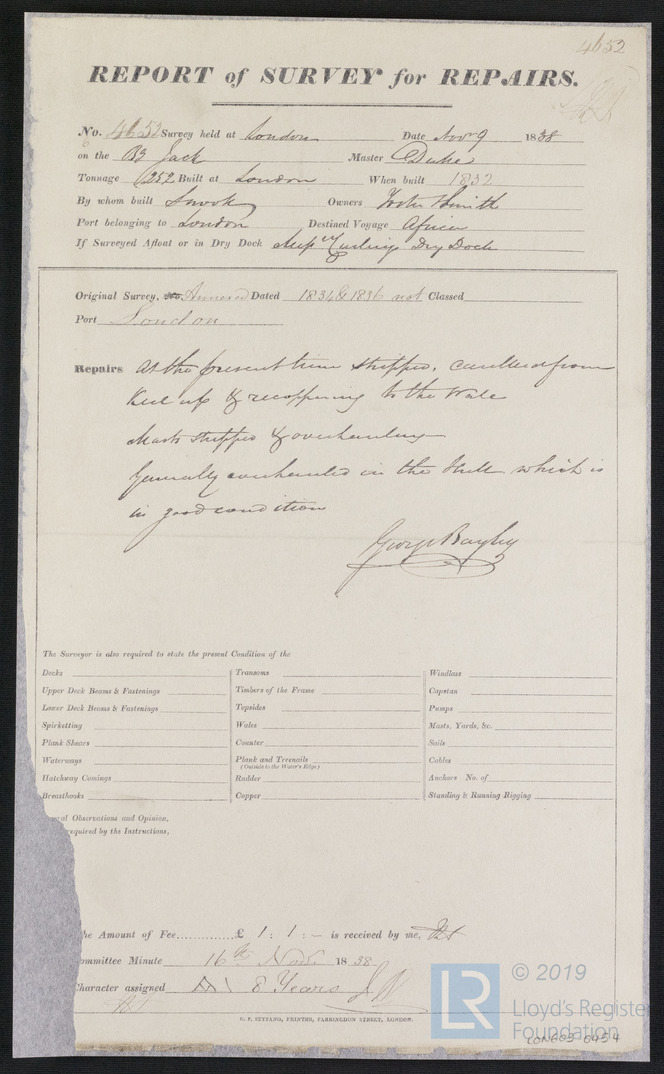 4652
REPORT of SURVEY for REPAIRS.
No. 4652 Survey held at London Date Novr 9 1838
on the Jack Master Duke
Tonnage 252 Built at London When built 1832
By whom built Snook Owners Smith
Port belonging to London Destined Voyage Africa
If Surveyed Afloat or in Dry Dock Messrs Curling Dry Dock
Original Survey, No. Annexed Dated 1834 & 1836 not Classed
Port London
Repairs At the present time stripped, caulked from
Keel up & recoppering to the Wale
Masts stripped & overhauling
Generally overhauled in the Hull which is
in good condition
George Bayley
The Surveyor is also required to state the present Condition of the
Decks Transoms Windlass
Upper Deck Beams & Fastenings Timbers of the Frame Capstan
Lower Deck Beams & Fastenings Topsides Pumps
Spirketting Wales Masts, Yards, &c.
Plank Shears Counter Sails
Waterways Plank and Treenails Cables
(Outside to the Water's Edge)
Hatchway Comings Rudder Anchors No. of
Breasthooks Copper Standing & Running Rigging
al Observations and Opinion,
equired by the Instructions,
he Amount of Fee............ £ 1 : 1 : – is received by me,
ommittee Minute 16th Novr 1838
Character assigned A1 8 Years
C. F. SEYFANG, PRINTER, FARRINGDON STREET, LONDON.
LR
© 2019
Lloyd's Register
Foundation
LON603-0454